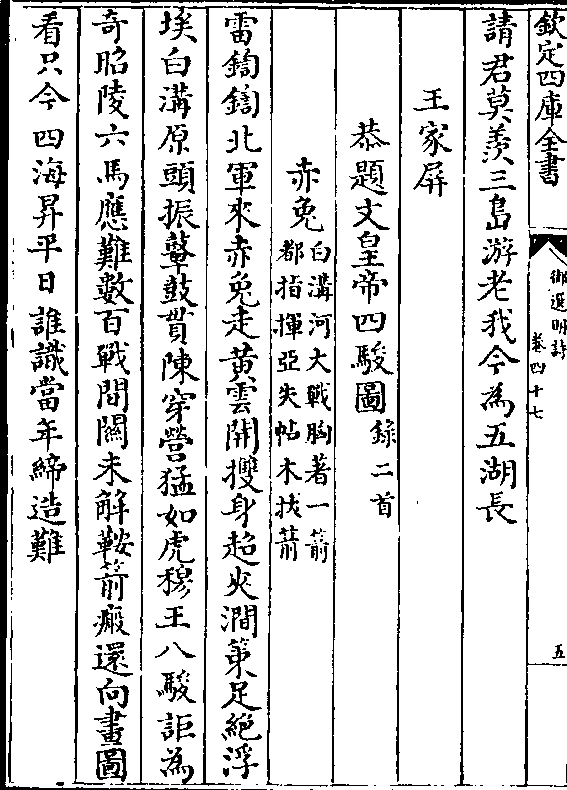 欽定四庫全書
御選明詩
卷四十七
五
請君莫羨三島游老我今為五湖長
王家屏
恭題文皇帝四駿圖錄二首
赤兔白溝河大戰胸著一箭
都指揮亞失帖木拔箭
雷鍧鍧北軍來赤兔走黄雲開擭身超夾澗策足絕浮
埃白溝原頭振鼙鼓貫陳穿營猛如虎穆王八駿詎為
奇昭陵六馬應難數百戰間關未解鞍箭瘢還向畫圖
看只今四海昇平日誰識當年締造難